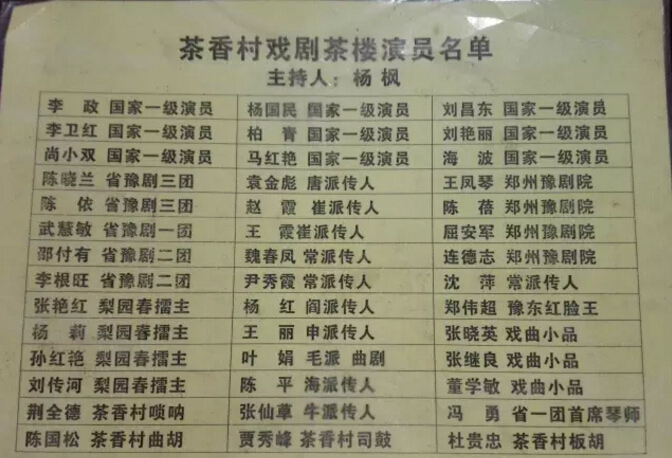 茶香村戏剧茶楼演员名单
主持人：杨枫
李 政 国家一级演员 杨国民 国家一级演员 刘昌东 国家一级演员
李卫红 国家一级演员 柏 青 国家一级演员 刘艳丽 国家一级演员
尚小双 国家一级演员 马红艳 国家一级演员 海 波 国家一级演员
陈晓兰 省豫剧三团 袁金彪 唐派传人 王凤琴 郑州豫剧院
陈 依 省豫剧三团 赵 霞 崔派传人 陈 蓓 郑州豫剧院
武慧敏 省豫剧一团 王 霞崔派传人 屈安军 郑州豫剧院
邵付有 省豫剧二团 魏春凤 常派传人 连德志 郑州豫剧院
李根旺 省豫剧二团 尹秀霞 常派传人 沈 萍 常派传人
张艳红 梨园春擂主 杨 红 阎派传人 郑伟超 豫东红脸王
杨 莉 梨园春擂主 王 丽 申派传人 张晓英 戏曲小品
孙红艳 梨园春擂主 叶 娟 毛派 曲剧 张继良 戏曲小品
刘传河 梨园春擂主 陈 平 海派传人 董学敏 戏曲小品
荆全德 茶香村唢呐 张仙草 牛派传人 冯 勇 省一团首席琴师
陈国松 茶香村曲胡 贾秀峰 茶香村司鼓 杜贵忠 茶香村板胡